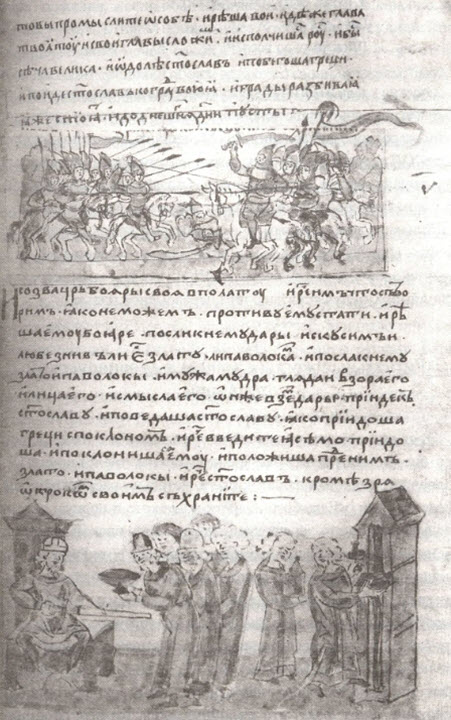 товы промыслите ѡ собѣ · и рѣша вои · идѣже глава
твоа тоу и свои главы сложи · и исполчиша роу · и бы
сѣча велика · и ѡдолѣ стославъ и побѣгоша греци ·
и поиде стославъ ко граⷣ воюꙗ · и грады разбиваꙗ
иже стоꙗⷮ и до днешнꙗ дни пусты
И созва црь боѧры своѧ в полатоу и реⷱ имъ что сотво
римъ · ꙗко не можемъ · противу ему стати · и рѣ
ша емоу боꙗре · посли к нему дары · искусимъ и ·
любезнивъ ли еⷭ злату · или паволокаⷨ · и посла к нему
злаⷮ и паволоки · и мужа мудра · глѧдаи взора его
и лица его · и смысла его · ѡн же взеⷨ дары · прїиде к
стославу · и поведаша стославу · ꙗко прїидоша
греци с поклономъ · и реⷱ введите ꙗ сѣмо · прїидо
ша · и поклонишаⷭ емоу · и положиша преⷣ нимъ
злато · и паволоки · и реⷱ стославъ · кромѣ зрѧ
ѡтрокоⷨ своимъ съхраните : —